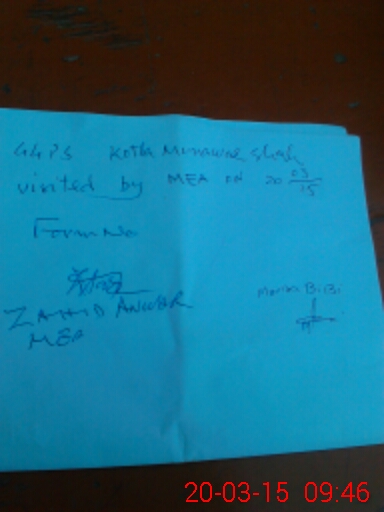 GGPS Kotla Munawar Shah
visited by MEA on 20 03/15
Form No
ZAHID ANWAR
MEA
BiBi
20-03-15 09:46